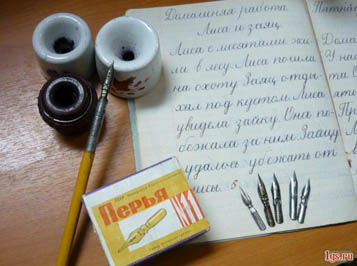 Домашняя работа.
Лиса и заяц.
Лиса с лисятами жи-
ли в лесу. Лиса пошла
на охоту. Заяц отды-
хал под кустом. Лиса
увидела зайку. Она по-
бежала за ним. Зайцу
удалось убежать от
лисы. 5
Перья
№11
1gs.ru